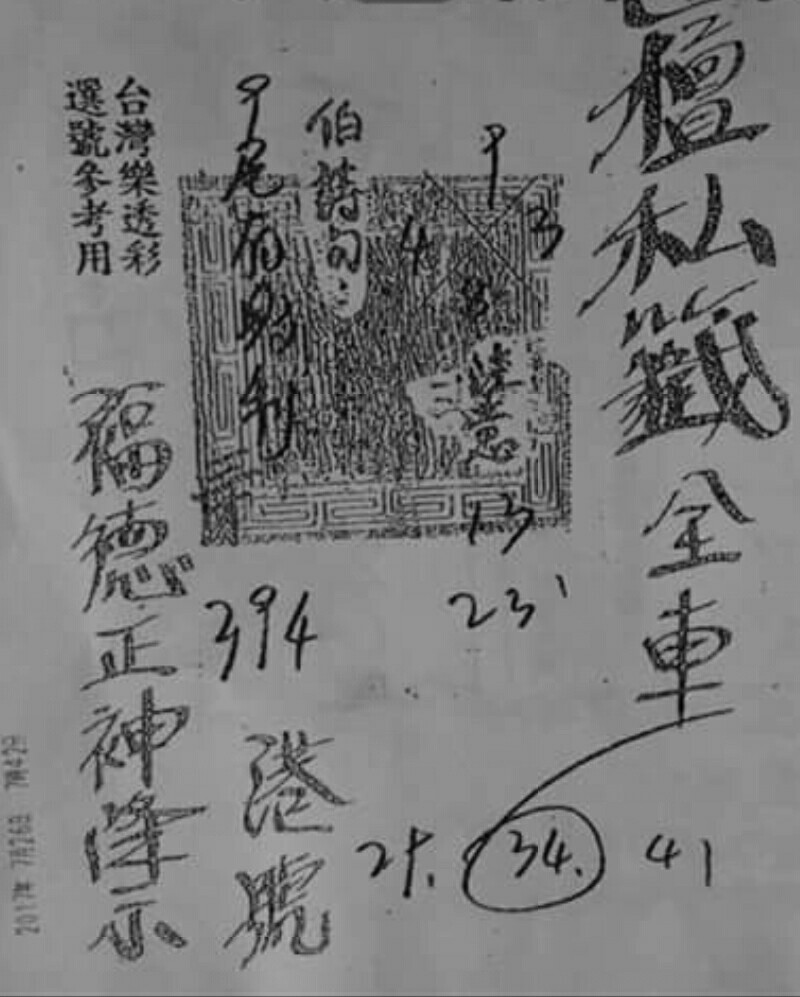 壇私籤全車
9
3
4
8
慧
三
13
23
25. 34. 41
伯詩句:
9尾有財利
394
港號
台灣樂透彩
選號參考用
福德正神降示
2017年 7月26日 7時42分